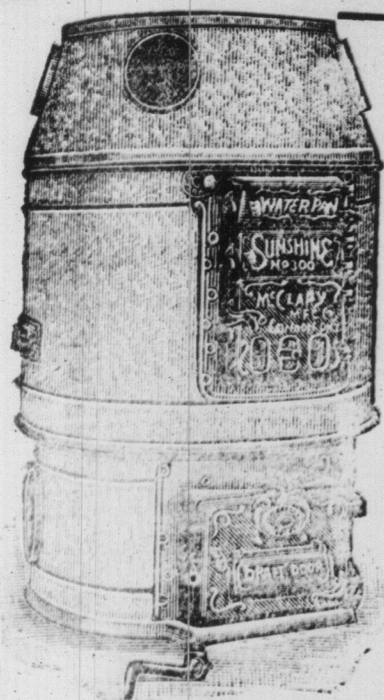 WATER PAN
SUNSHINE
NO 300
MCCLARY
MFG
LONDON ONT
DRAFT DOOR